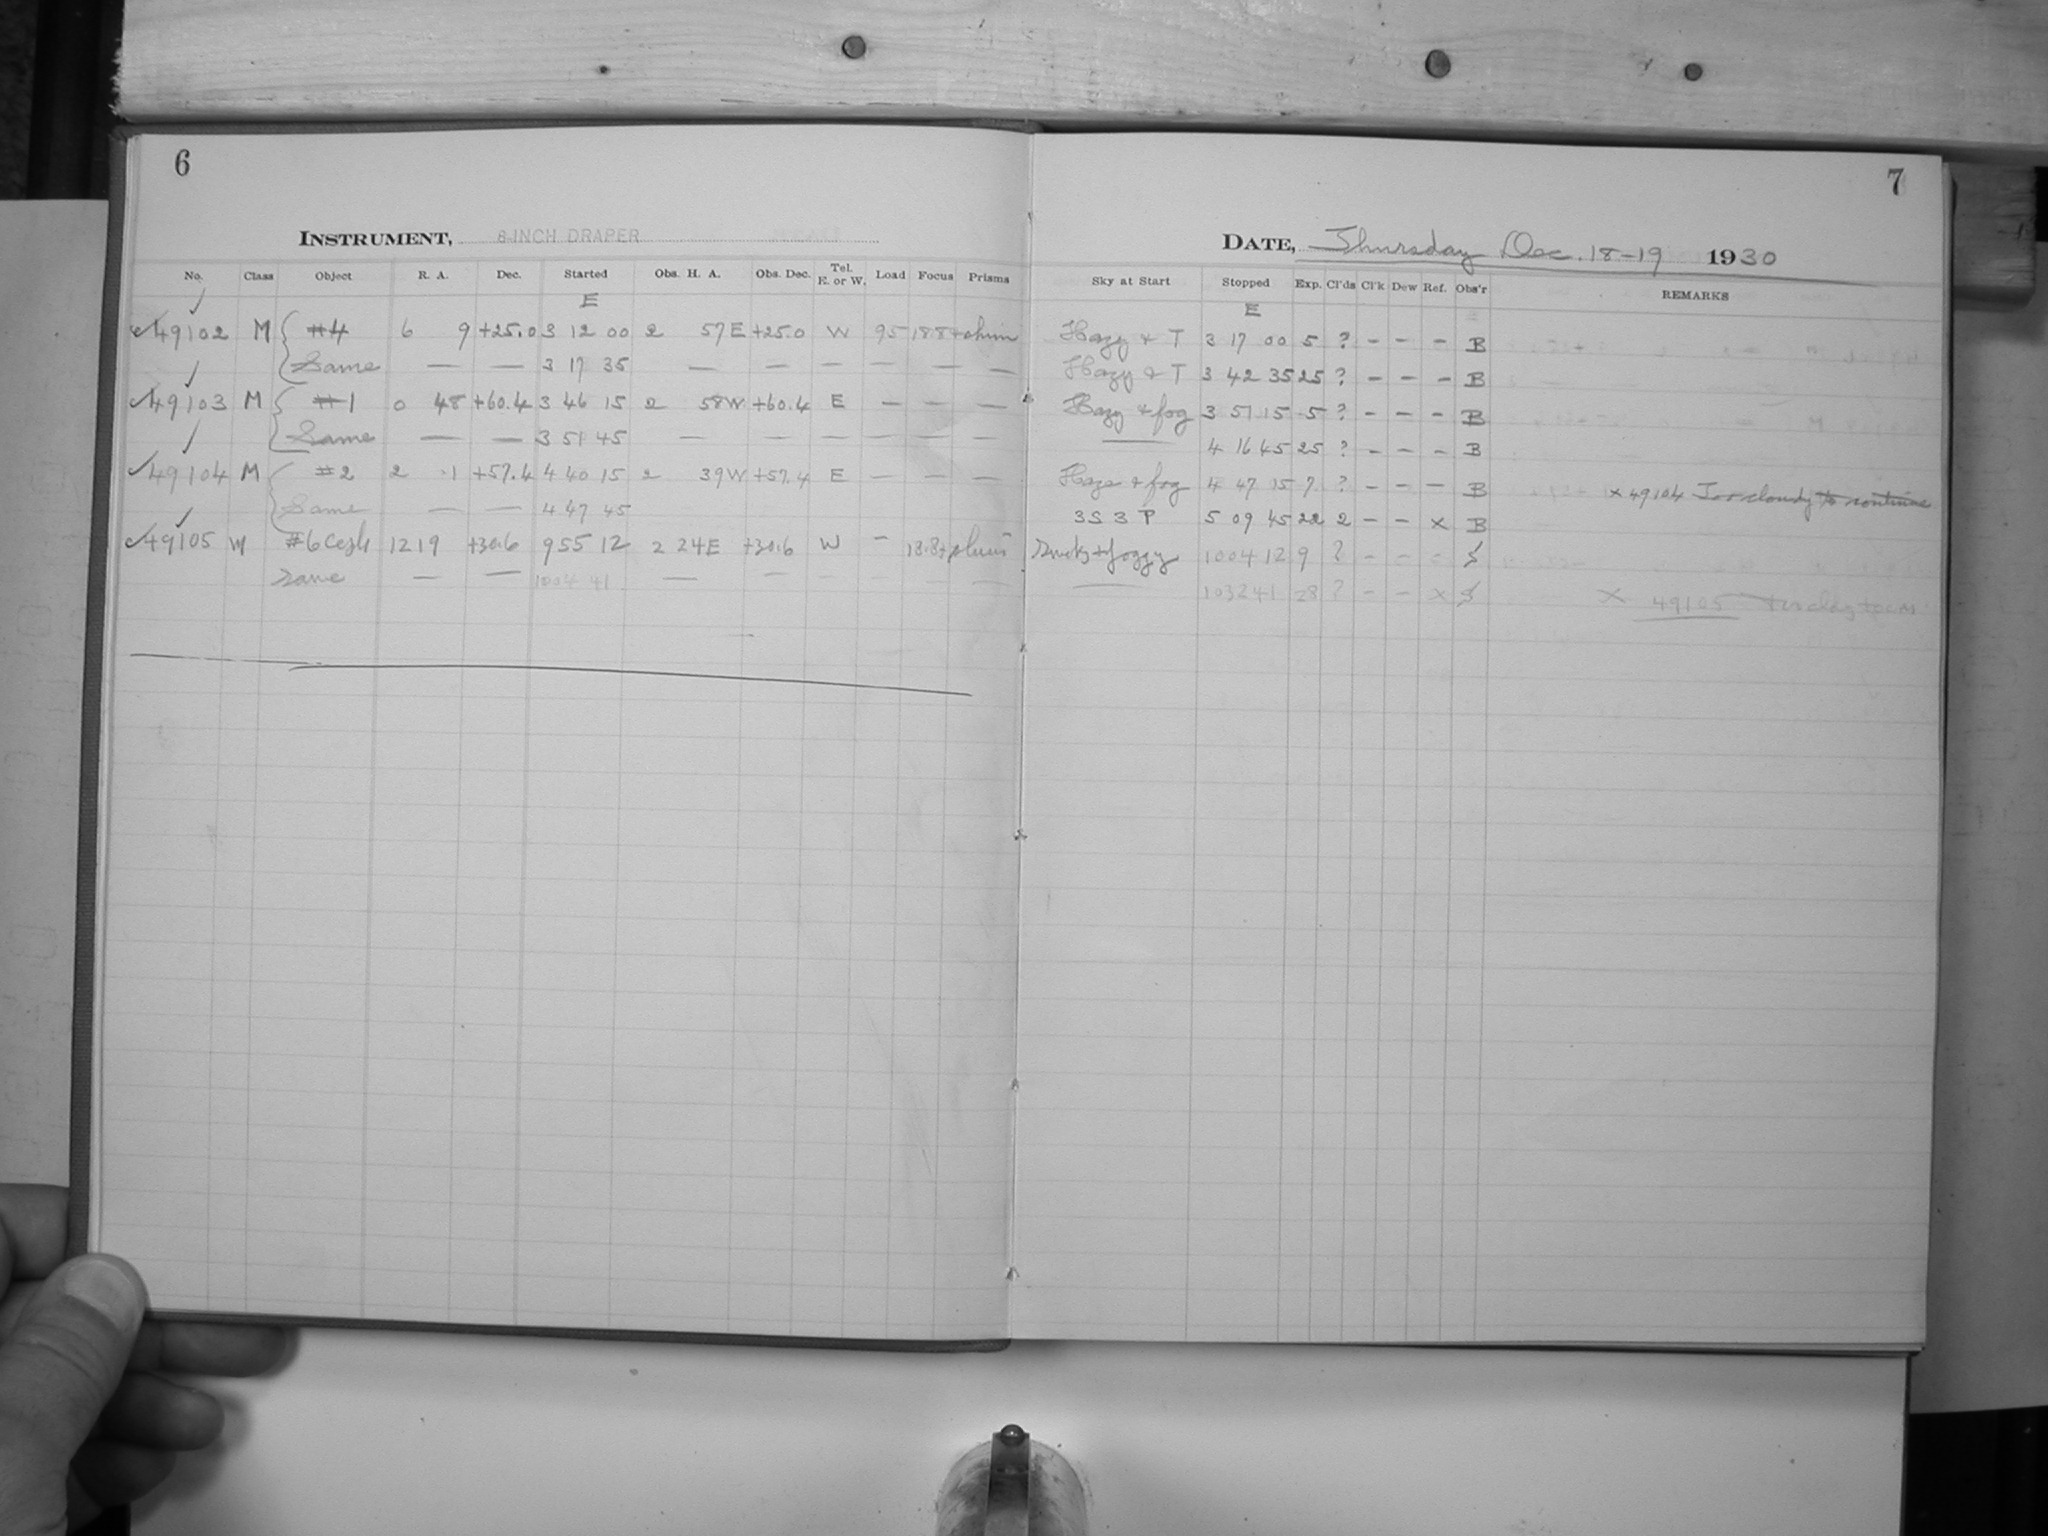 6
INSTRUMENT, 8-INCH DRAPER
No. Class Object R. A. Dec. Started Obs. H. A. Obs. Dec. Tel. E. or W. Load Focus Prisms
E
49102 M #4 6 9 +25.0 3 12 00 2 57E +25.0 W 95 18.8+
Same — — 3 17 35 — — — — — —
49103 M #1 0 48 +60.4 3 46 15 2 58W +60.4 E — — —
Same — — 3 51 45 — — — — — —
49104 M #2 2 1 +57.4 4 40 15 2 39W +57.4 E — — —
Same — — 4 47 45
49105 M #6 12 19 +30.6 9 55 12 2 24E +30.6 W - 18.8+
Same — — 10 04 41 — — — — — —
7
DATE, Thursday Dec. 18-19 1930
Sky at Start Stopped Exp. Cl'ds Cl'k Dew Ref. Obs'r REMARKS
E
Hazy & T 3 17 00 5 ? - - - B
Hazy & T 3 42 35 25 ? - - - B
Hazy & fog 3 51 15 5 ? - - - B
— 4 16 45 25 ? - - - B
Haze & fog 4 47 15 7 ? - - - B x 49104 Too cloudy to continue
3S 3 P 5 09 45 22 2 - - x B
foggy 10 04 12 9 ? - - -
— 10 32 41 28 ? - - x x 49105